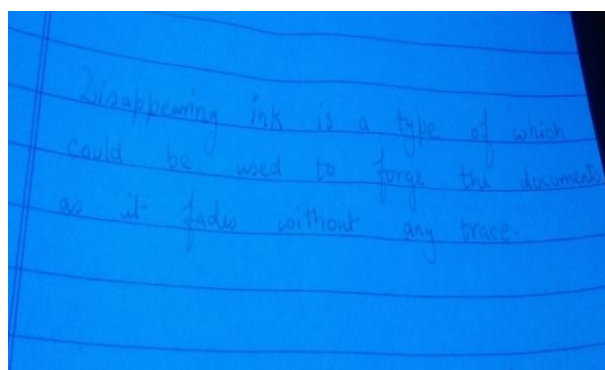 Disappearing ink is a type of which
could be used to forge the documents
as it fades without any trace.